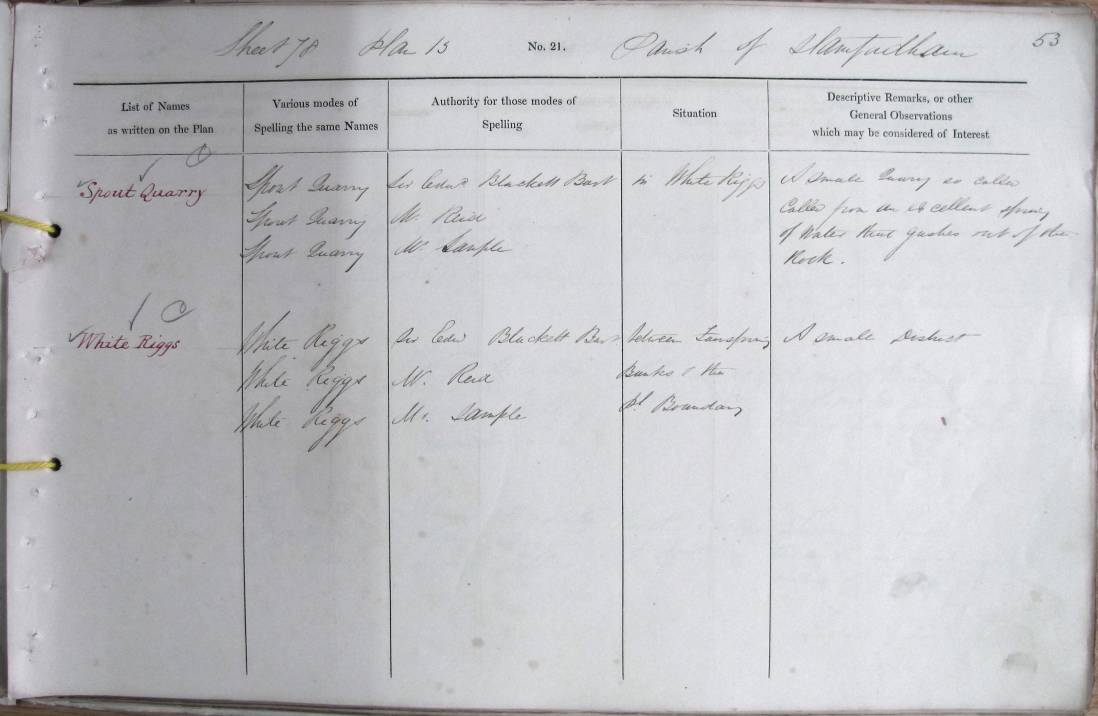 Sheet 78 Plan 13 No. 21. Parish of Stamfordham 53
List of Names
as written on the Plan
Various modes of
Spelling the same Names
Authority for those modes of
Spelling
Situation
Descriptive Remarks, or other
General Observations
which may be considered of Interest
Spout Quarry
Spout Quarry
Spout Quarry
Spout Quarry
Sir Edwd Blackett Bart
Mr. Reid
Mr. Sample
in White Riggs
A small Quarry so called
Called from an excellent spring
of Water that gushes out of the
Rock.
White Riggs
White Riggs
White Riggs
White Riggs
Sir Edwd Blackett Bart
Mr. Reid
Mr. Sample
between
Banks & the
Ph. Boundary
A small District